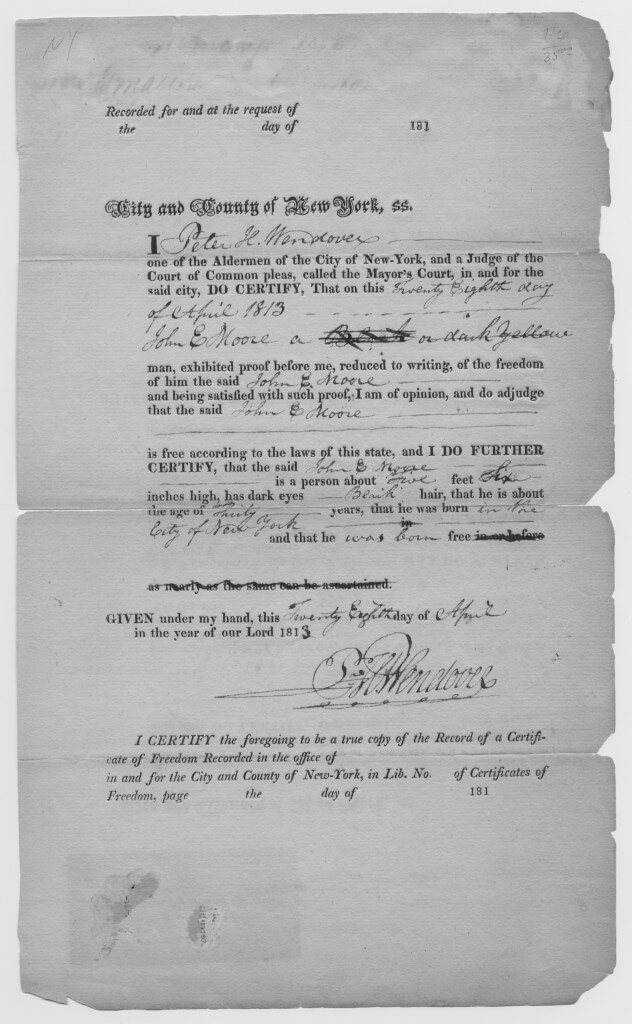 Recorded for and at the request of
the day of 181
City and County of New York, ss.
I Peter H. Wendover
one of the Aldermen of the City of New-York, and a Judge of the
Court of Common pleas, called the Mayor's Court, in and for the
said city, DO CERTIFY, That on this Twenty Eighth day
of April 1813
John E Moore a Black or dark Yellow
man, exhibited proof before me, reduced to writing, of the freedom
of him the said John E. Moore
and being satisfied with such proof, I am of opinion, and do adjudge
that the said John E Moore
is free according to the laws of this state, and I DO FURTHER
CERTIFY, that the said John E Moore
is a person about Five feet Six
inches high, has dark eyes Black hair, that he is about
the age of Thirty years, that he was born in the
City of New York in
and that he was born free in or before
as nearly as the same can be ascertained.
GIVEN under my hand, this Twenty Eighth day of April
in the year of our Lord 1813
P. H. Wendover
I CERTIFY the foregoing to be a true copy of the Record of a Certifi-
cate of Freedom Recorded in the office of
in and for the City and County of New-York, in Lib. No. of Certificates of
Freedom, page the day of 181